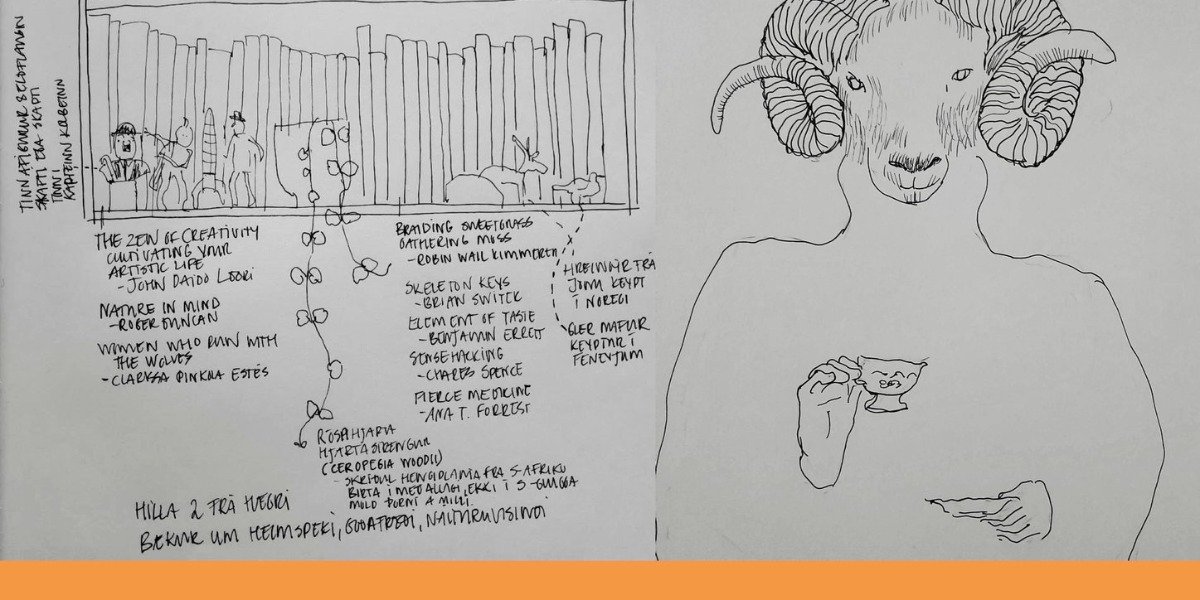 SKAPTI EÐA SKAPTI
TINNI
KAPTEINN KOLBEINN
THE ZEN OF CREATIVITY
CULTIVATING YOUR
ARTISTIC LIFE
- JOHN DAIDO LOORI
NATURE IN MIND
- ROGER DUNCAN
WOMEN WHO RUN WITH
THE WOLVES
- CLARISSA PINKOLA ESTÉS
BRAIDING SWEETGRASS
GATHERING MOSS
- ROBIN WALL KIMMERER
SKELETON KEYS
- BRIAN SWITEK
ELEMENT OF TASTE
- BENJAMIN ERRETT
SENSEHACKING
- CHARES SPENCE
FIERCE MEDICINE
- ANA T. FORREST
HREINDÝR FRÁ
JÓNU KEYPT
Í NOREGI
GLER
KEYPTUR Í
FENEYJUM
RÓSAHJARTA
HJARTASTRENGUR
(CEROPEGIA WOODII)
- SKRIÐUL HENGIPLANTA FRÁ S-AFRÍKU
BIRTA Í MEÐALLAGI, EKKI Í S-GLUGGA
MOLD ÞORNI Á MILLI
HILLA 2 FRÁ HÆGRI
BÆKUR UM HEIMSPEKI, GOÐAFRÆÐI, NÁTTÚRUVÍSINDI